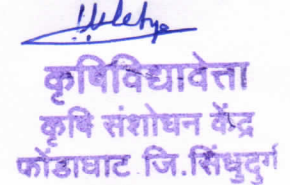 कृषिविद्यावेत्ता
कृषि संशोधन केंद्र
फोंडाघाट जि.सिंधुदुर्ग